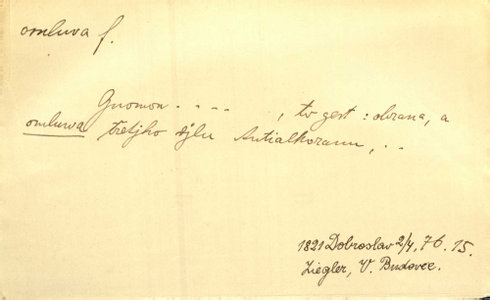 omluva f.
Gnomon . . . . , to gest : obrana, a
omluwa třetjho djlu Antialkoranu, . .
1821 Dobroslav 2/4, 76. 15.
Ziegler, V. Budovec.